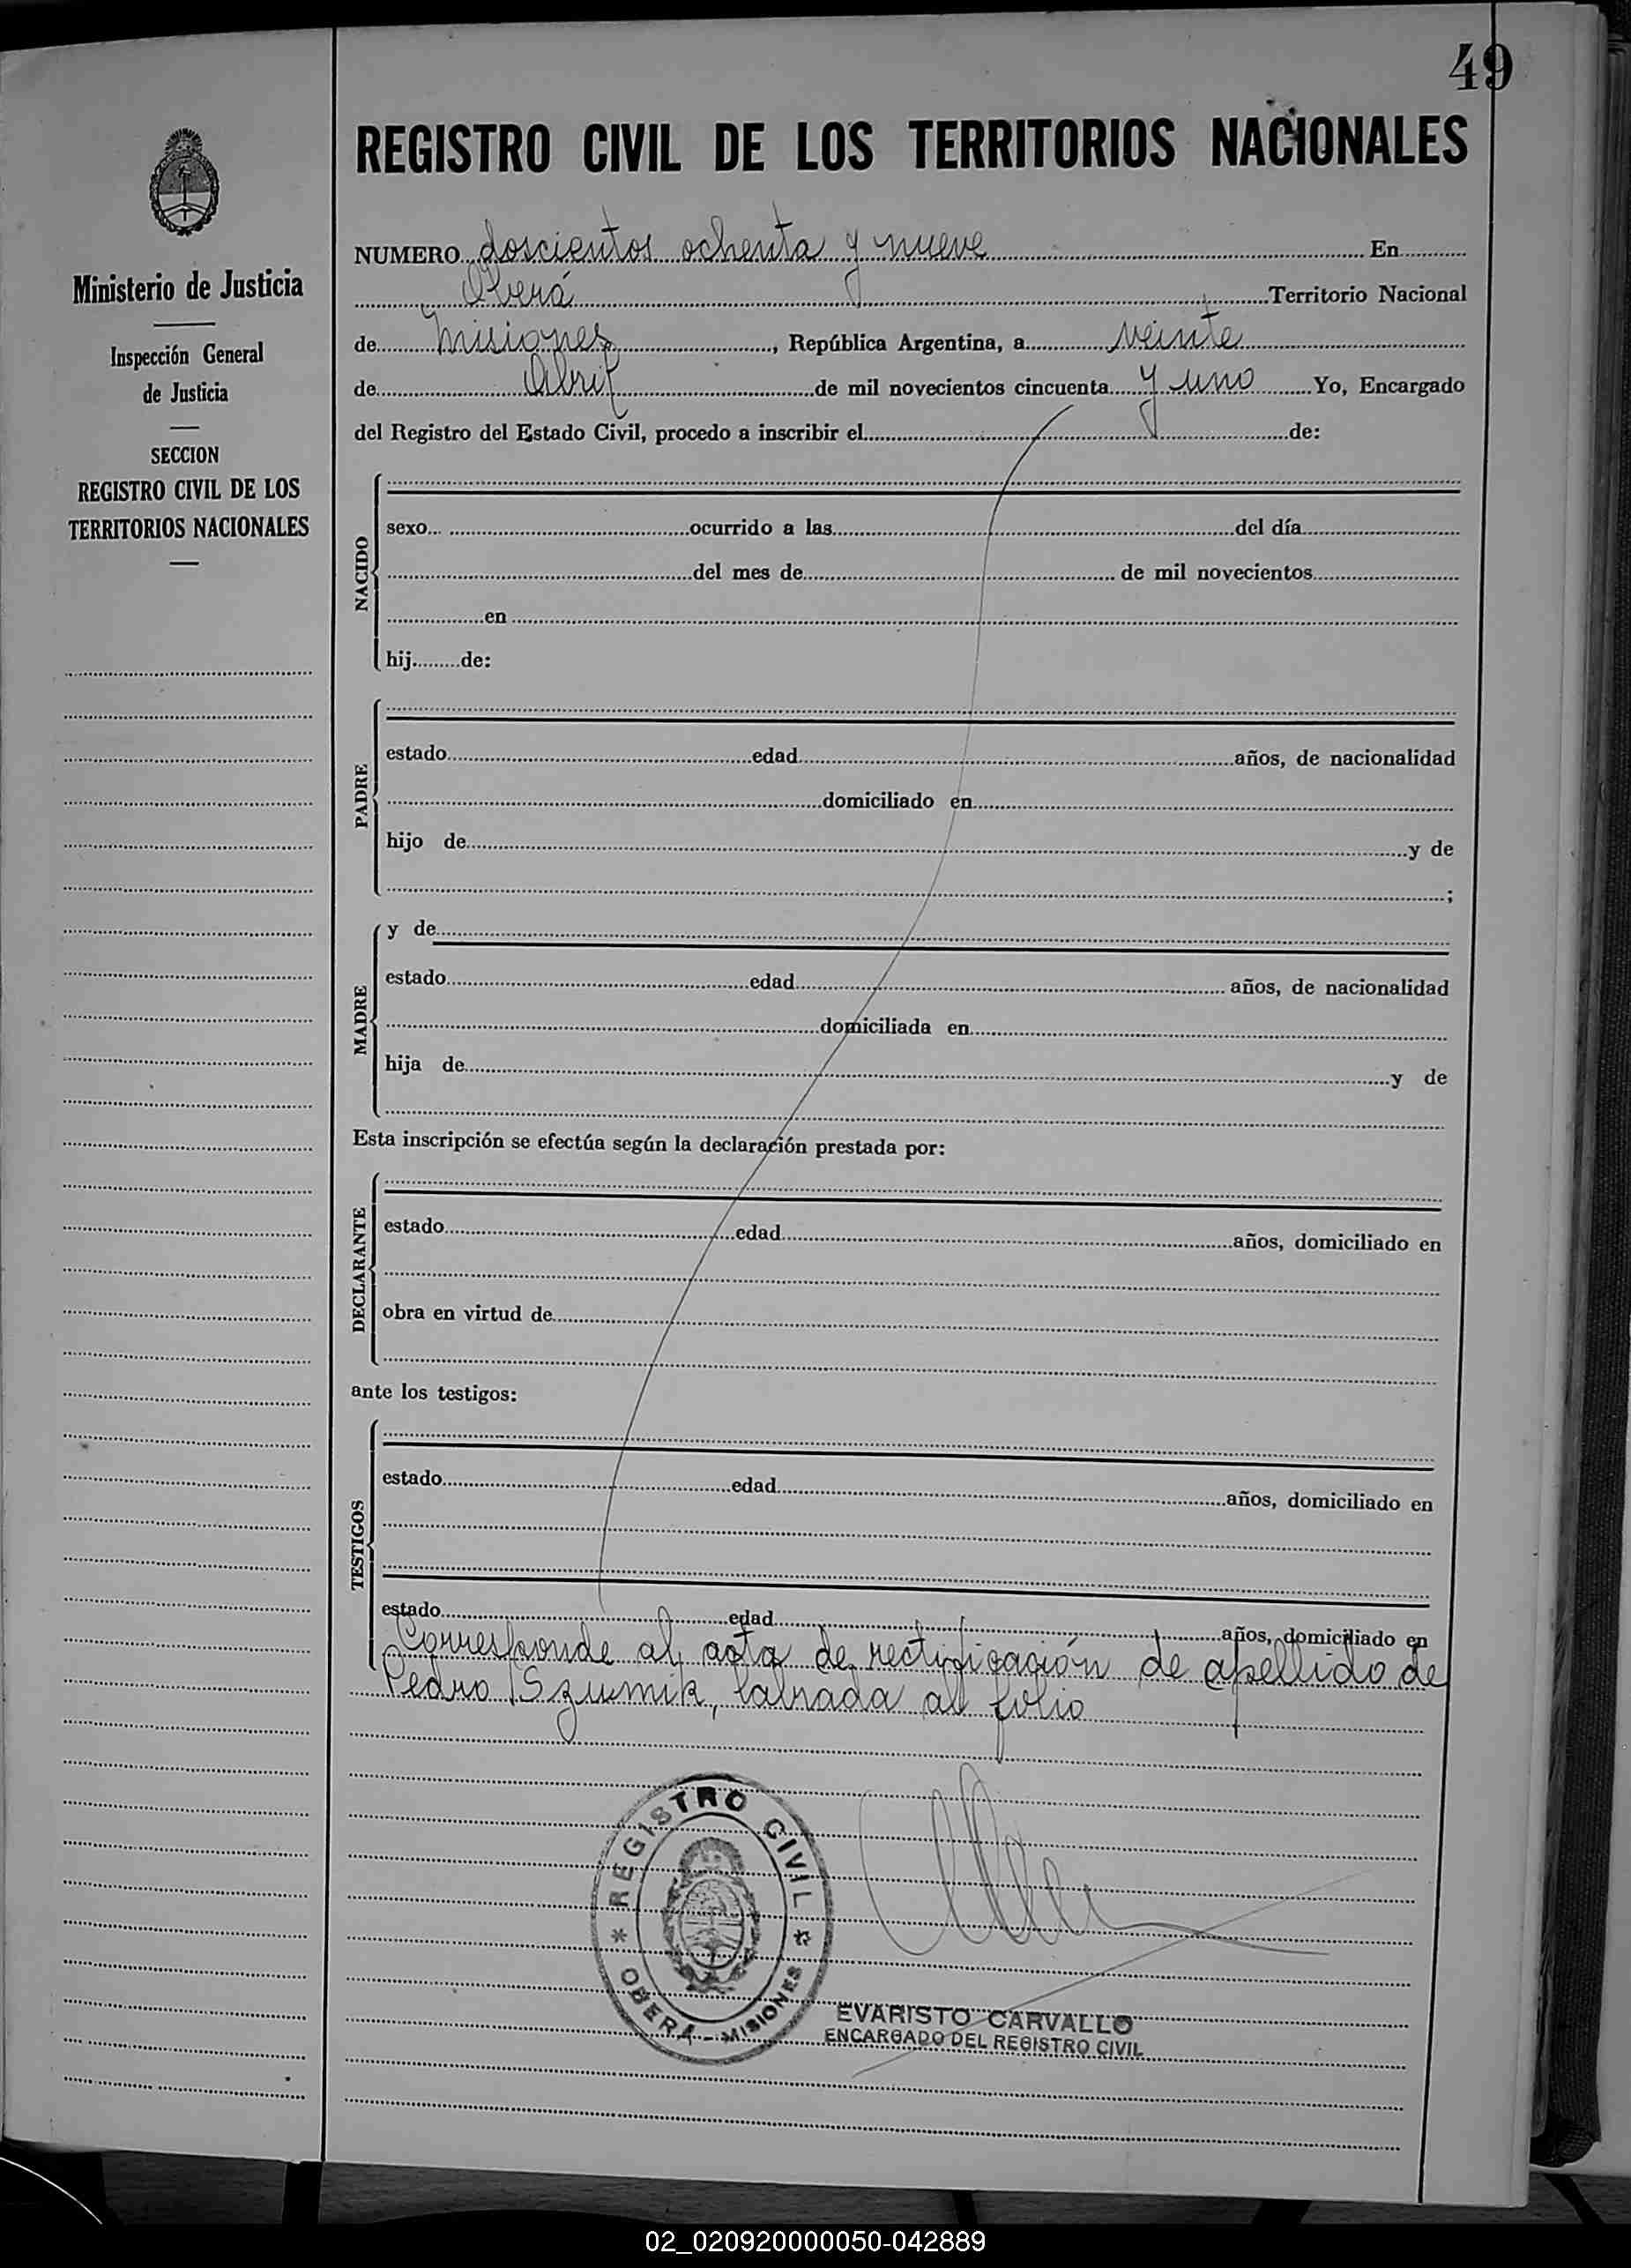 49
REGISTRO CIVIL DE LOS TERRITORIOS NACIONALES
Ministerio de Justicia
Inspección General
de Justicia
SECCION
REGISTRO CIVIL DE LOS
TERRITORIOS NACIONALES
NUMERO doscientos ochenta y nueve En
Oberá Territorio Nacional
de Misiones, República Argentina, a veinte
de Abril de mil novecientos cincuenta y uno Yo, Encargado
del Registro del Estado Civil, procedo a inscribir el de:
NACIDO
sexo ocurrido a las del día
del mes de de mil novecientos
en
hij de:
PADRE
estado edad años, de nacionalidad
domiciliado en
hijo de y de
;
MADRE
y de
estado edad años, de nacionalidad
domiciliada en
hija de y de
Esta inscripción se efectúa según la declaración prestada por:
DECLARANTE
estado edad años, domiciliado en
obra en virtud de
ante los testigos:
TESTIGOS
estado edad años, domiciliado en
estado edad años, domiciliado en
Corresponde al acta de rectificación de apellido de
Pedro Szumik, labrada al folio
REGISTRO CIVIL
* OBERÁ - MISIONES *
EVARISTO CARVALLO
ENCARGADO DEL REGISTRO CIVIL
02_020920000050-042889